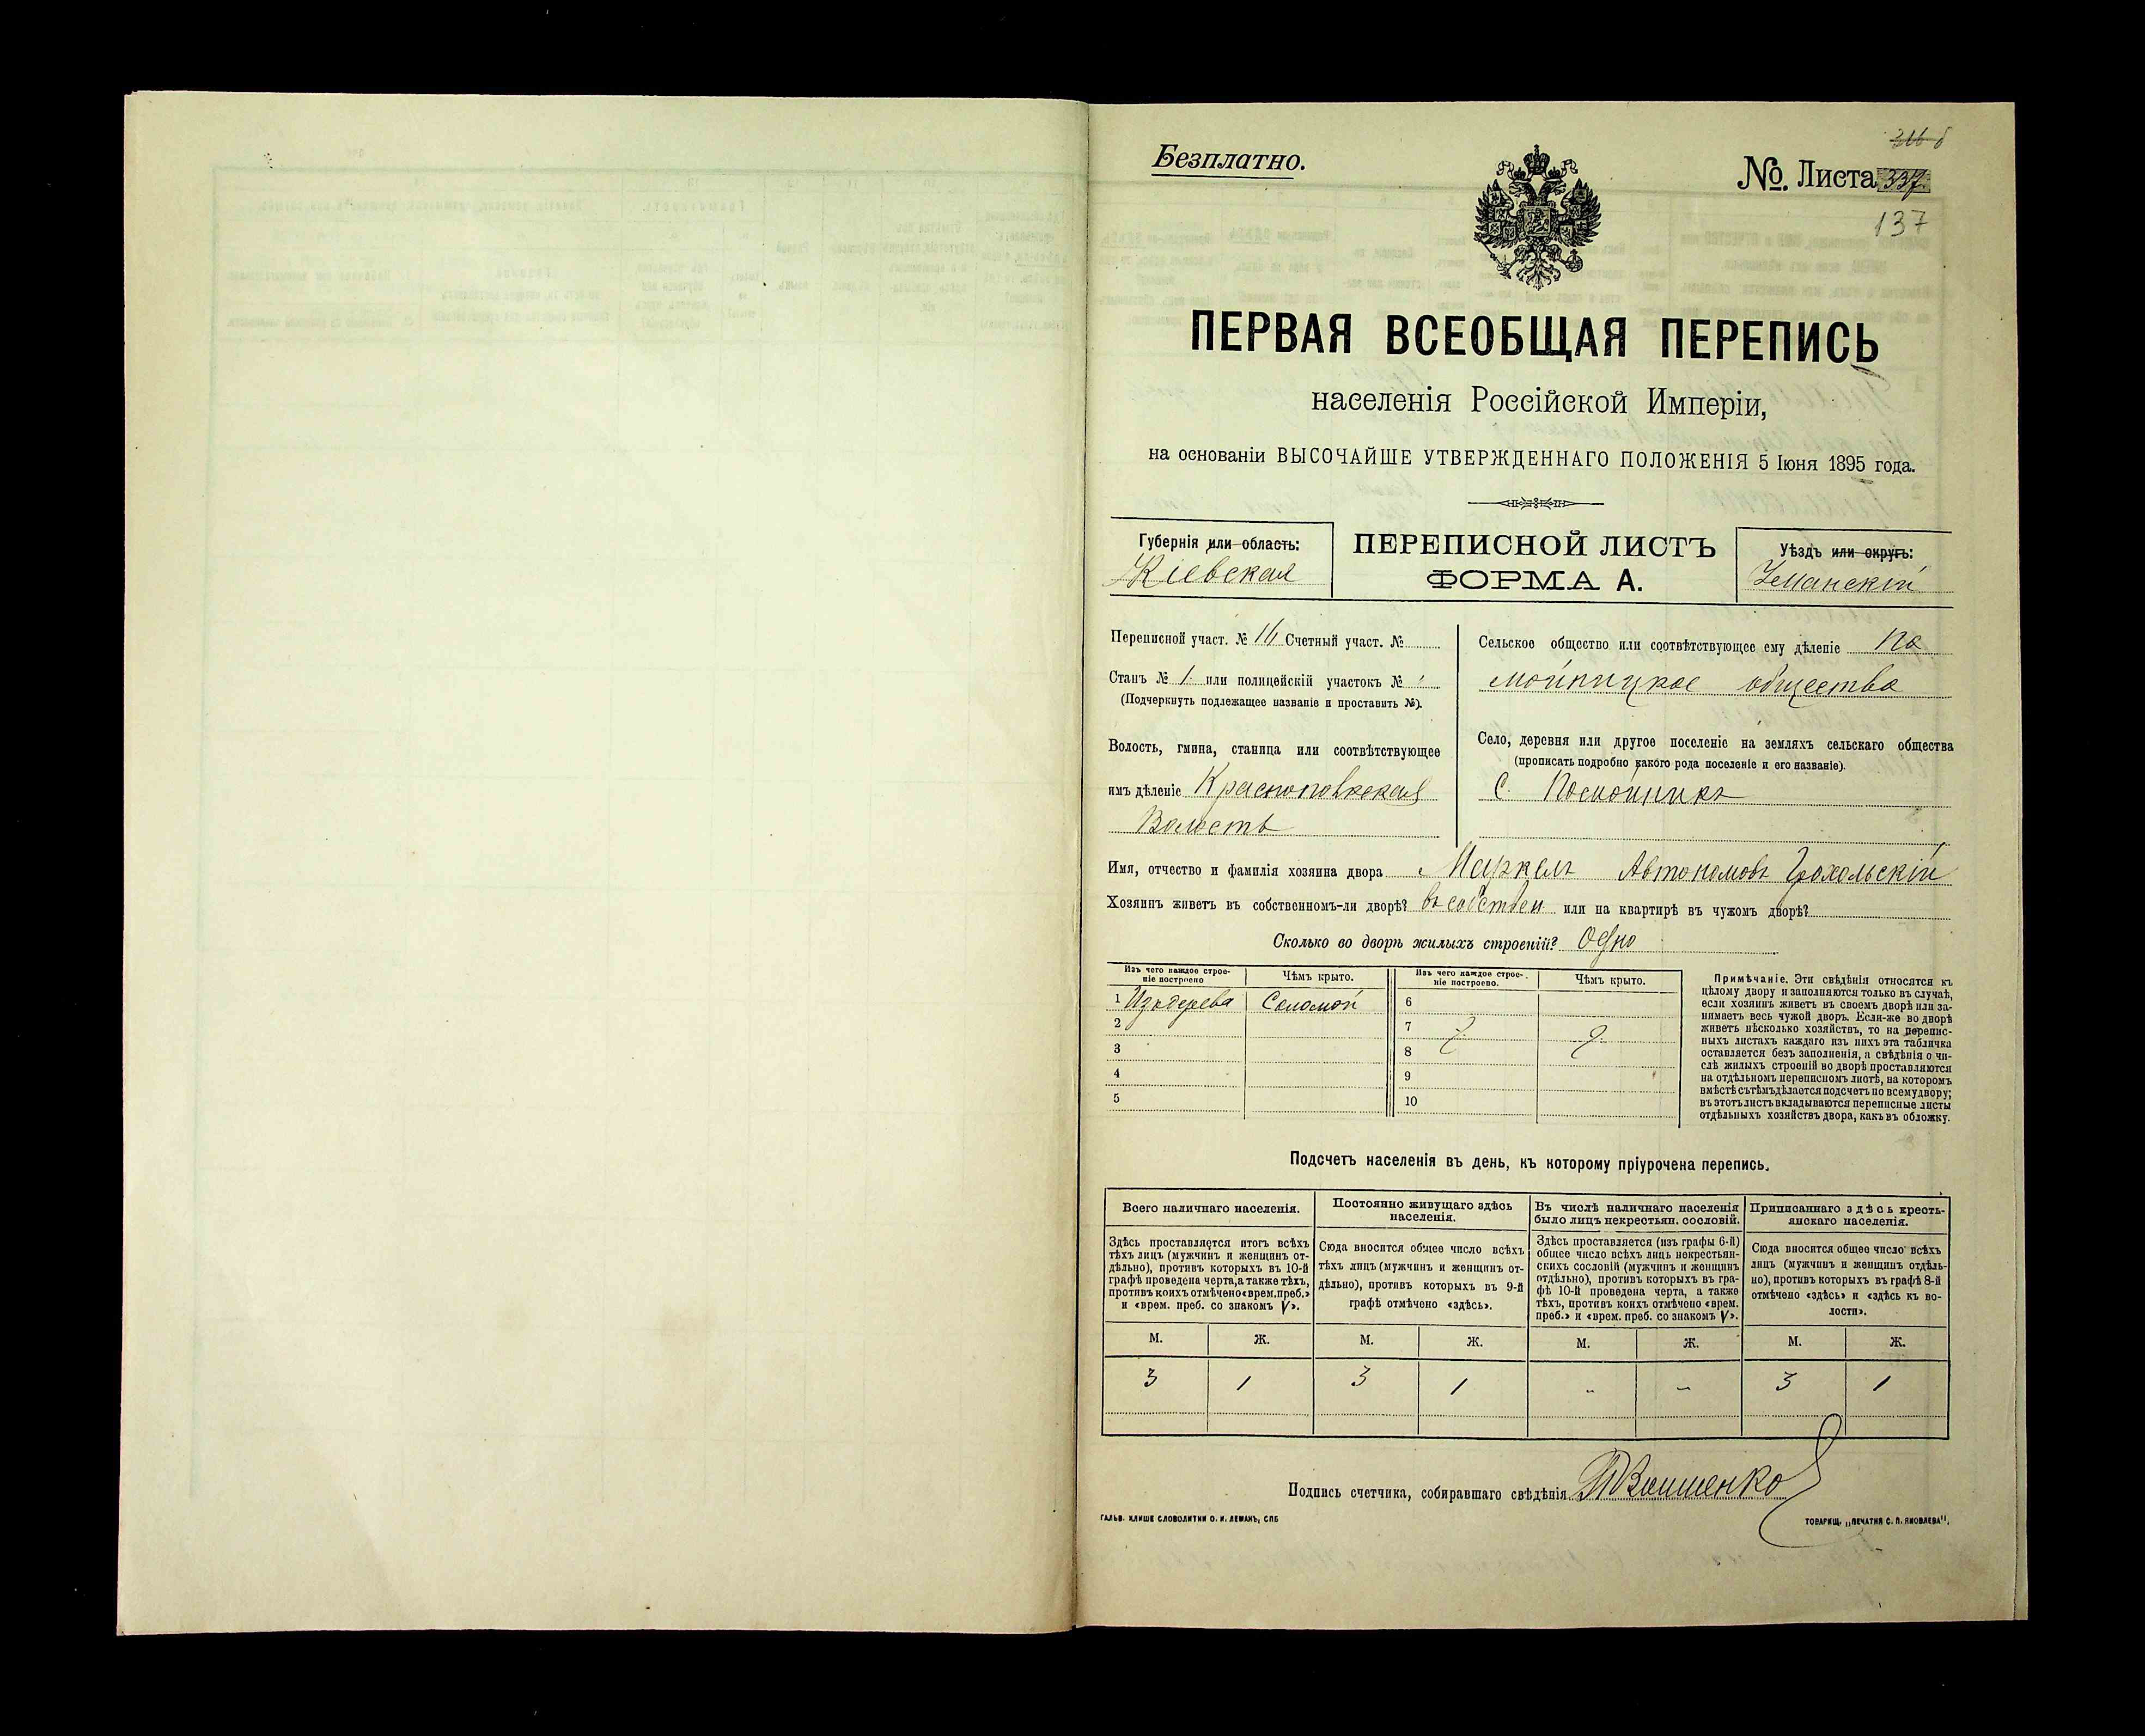 316 б
Безплатно.
№. Листа 337.
137
ПЕРВАЯ ВСЕОБЩАЯ ПЕРЕПИСЬ
населенія Россійской Имперіи,
на основаніи ВЫСОЧАЙШЕ УТВЕРЖДЕННАГО ПОЛОЖЕНІЯ 5 Іюня 1895 года.
Губернія или область:
Кіевская
ПЕРЕПИСНОЙ ЛИСТЪ
ФОРМА А.
Уѣздъ или округъ:
Уманскій
Переписной участ. № 16 Счетный участ. №
Станъ № 1. или полицейскій участокъ №
(Подчеркнуть подлежащее названіе и проставить №).
Волость, гмина, станица или соотвѣтствующее
имъ дѣленіе Краснопольская
Волость
Сельское общество или соотвѣтствующее ему дѣленіе По
мойницкое общество
Село, деревня или другое поселеніе на земляхъ сельскаго общества
(прописать подробно какого рода поселеніе и его названіе).
С. Помойникъ
Имя, отчество и фамилія хозяина двора Маркелъ Автономовъ Грохольскій
Хозяинъ живетъ въ собственномъ-ли дворѣ? въ собствен или на квартирѣ въ чужомъ дворѣ?
Сколько во дворѣ жилыхъ строеній? Одно
Изъ чего каждое строе-
ніе построено
Чѣмъ крыто.
Изъ чего каждое строе-
ніе построено.
Чѣмъ крыто.
1 Изъ дерева Соломой
2
3
4
5
6
7
8
9
10
Примѣчаніе. Эти свѣдѣнія относятся къ
цѣлому двору и заполняются только въ случаѣ,
если хозяинъ живетъ въ своемъ дворѣ или за-
нимаетъ весь чужой дворъ. Если-же во дворѣ
живетъ нѣсколько хозяйствъ, то на перепис-
ныхъ листахъ каждаго изъ нихъ эта табличка
оставляется безъ заполненія, а свѣдѣнія о чи-
слѣ жилыхъ строеній во дворѣ проставляются
на отдѣльномъ переписномъ листѣ, на которомъ
вмѣстѣ съ тѣмъ дѣлается подсчетъ по всему двору;
въ этотъ листъ вкладываются переписные листы
отдѣльныхъ хозяйствъ двора, какъ въ обложку.
Подсчетъ населенія въ день, къ которому пріурочена перепись.
Всего наличнаго населенія.
Здѣсь проставляется итогъ всѣхъ
тѣхъ лицъ (мужчинъ и женщинъ от-
дѣльно), противъ которыхъ въ 10-й
графѣ проведена черта, а также тѣхъ,
противъ коихъ отмѣчено «врем. преб.»
и «врем. преб. со знакомъ V».
Постоянно живущаго здѣсь
населенія.
Сюда вносится общее число всѣхъ
тѣхъ лицъ (мужчинъ и женщинъ от-
дѣльно), противъ которыхъ въ 9-й
графѣ отмѣчено «здѣсь».
Въ числѣ наличнаго населенія
было лицъ некрестьян. сословій.
Здѣсь проставляется (изъ графы 6-й)
общее число всѣхъ лицъ некрестьян-
скихъ сословій (мужчинъ и женщинъ
отдѣльно), противъ которыхъ въ гра-
фѣ 10-й проведена черта, а также
тѣхъ, противъ коихъ отмѣчено «врем.
преб.» и «врем. преб. со знакомъ V».
Приписаннаго здѣсь кресть-
янскаго населенія.
Сюда вносится общее число всѣхъ
лицъ (мужчинъ и женщинъ отдѣль-
но), противъ которыхъ въ графѣ 8-й
отмѣчено «здѣсь» и «здѣсь къ во-
лости».
М. Ж. М. Ж. М. Ж. М. Ж.
3 1 3 1 „ „ 3 1
Подпись счетчика, собиравшаго свѣдѣнія
ГАЛЬВ. КЛИШЕ СЛОВОЛИТНИ О. И. ЛЕМАНЪ, СПБ
ТОВАРИЩ. „ПЕЧАТНЯ С. П. ЯКОВЛЕВА".